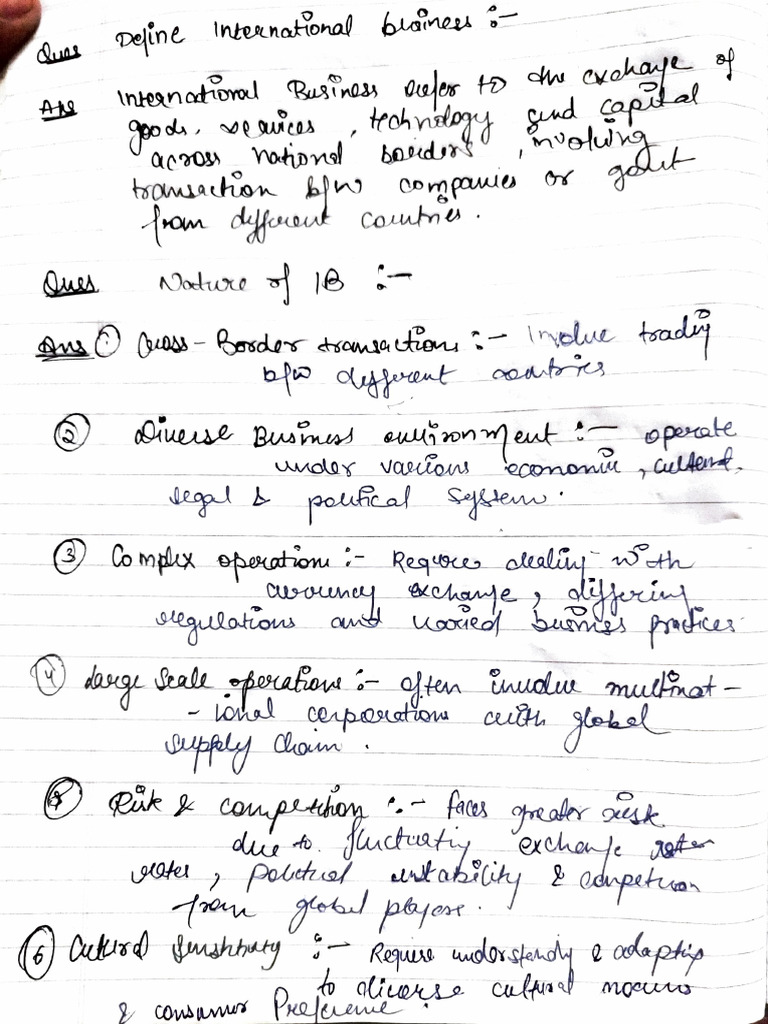 Ques Define International business :-
Ans International Business refer to the exchange of
goods, services, technology and capital
across national borders, involving
transaction b/w companies or govt
from different countries.
Ques Nature of IB :-
Ans ① Cross-Border transactions :- Involve trading
b/w different countries
② Diverse Business environment :- operate
under various economic, cultural,
legal & political system.
③ Complex operation :- Require dealing with
currency exchange, differing
regulations and varied business practices.
④ Large Scale operations :- often involve multinat-
-ional corporations with global
supply chain.
Risk & competition :- faces greater risk
due to fluctuating exchange
rates, political instability & competition
from global players.
⑥ Cultural Sensitivity :- Require understandy & adapting
to diverse cultural norms
& consumer Preference.